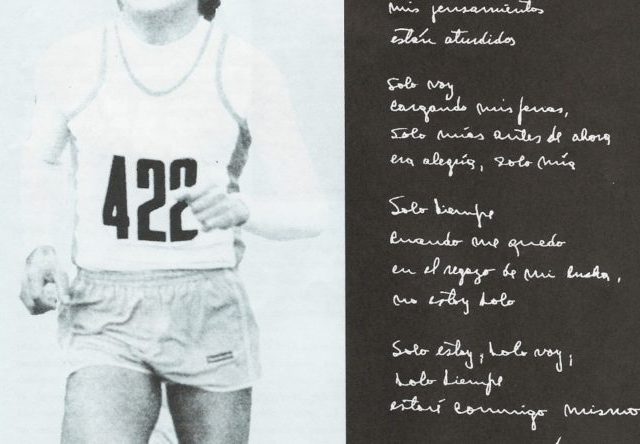 422
mis pensamientos
están aturdidos
Solo voy
cargando mis penas,
solo mías antes de ahora
era alegría, solo mía
Solo siempre
cuando me quedo
en el regazo de mi lucha,
no estoy solo
Solo estoy, solo voy,
solo siempre
estaré conmigo mismo